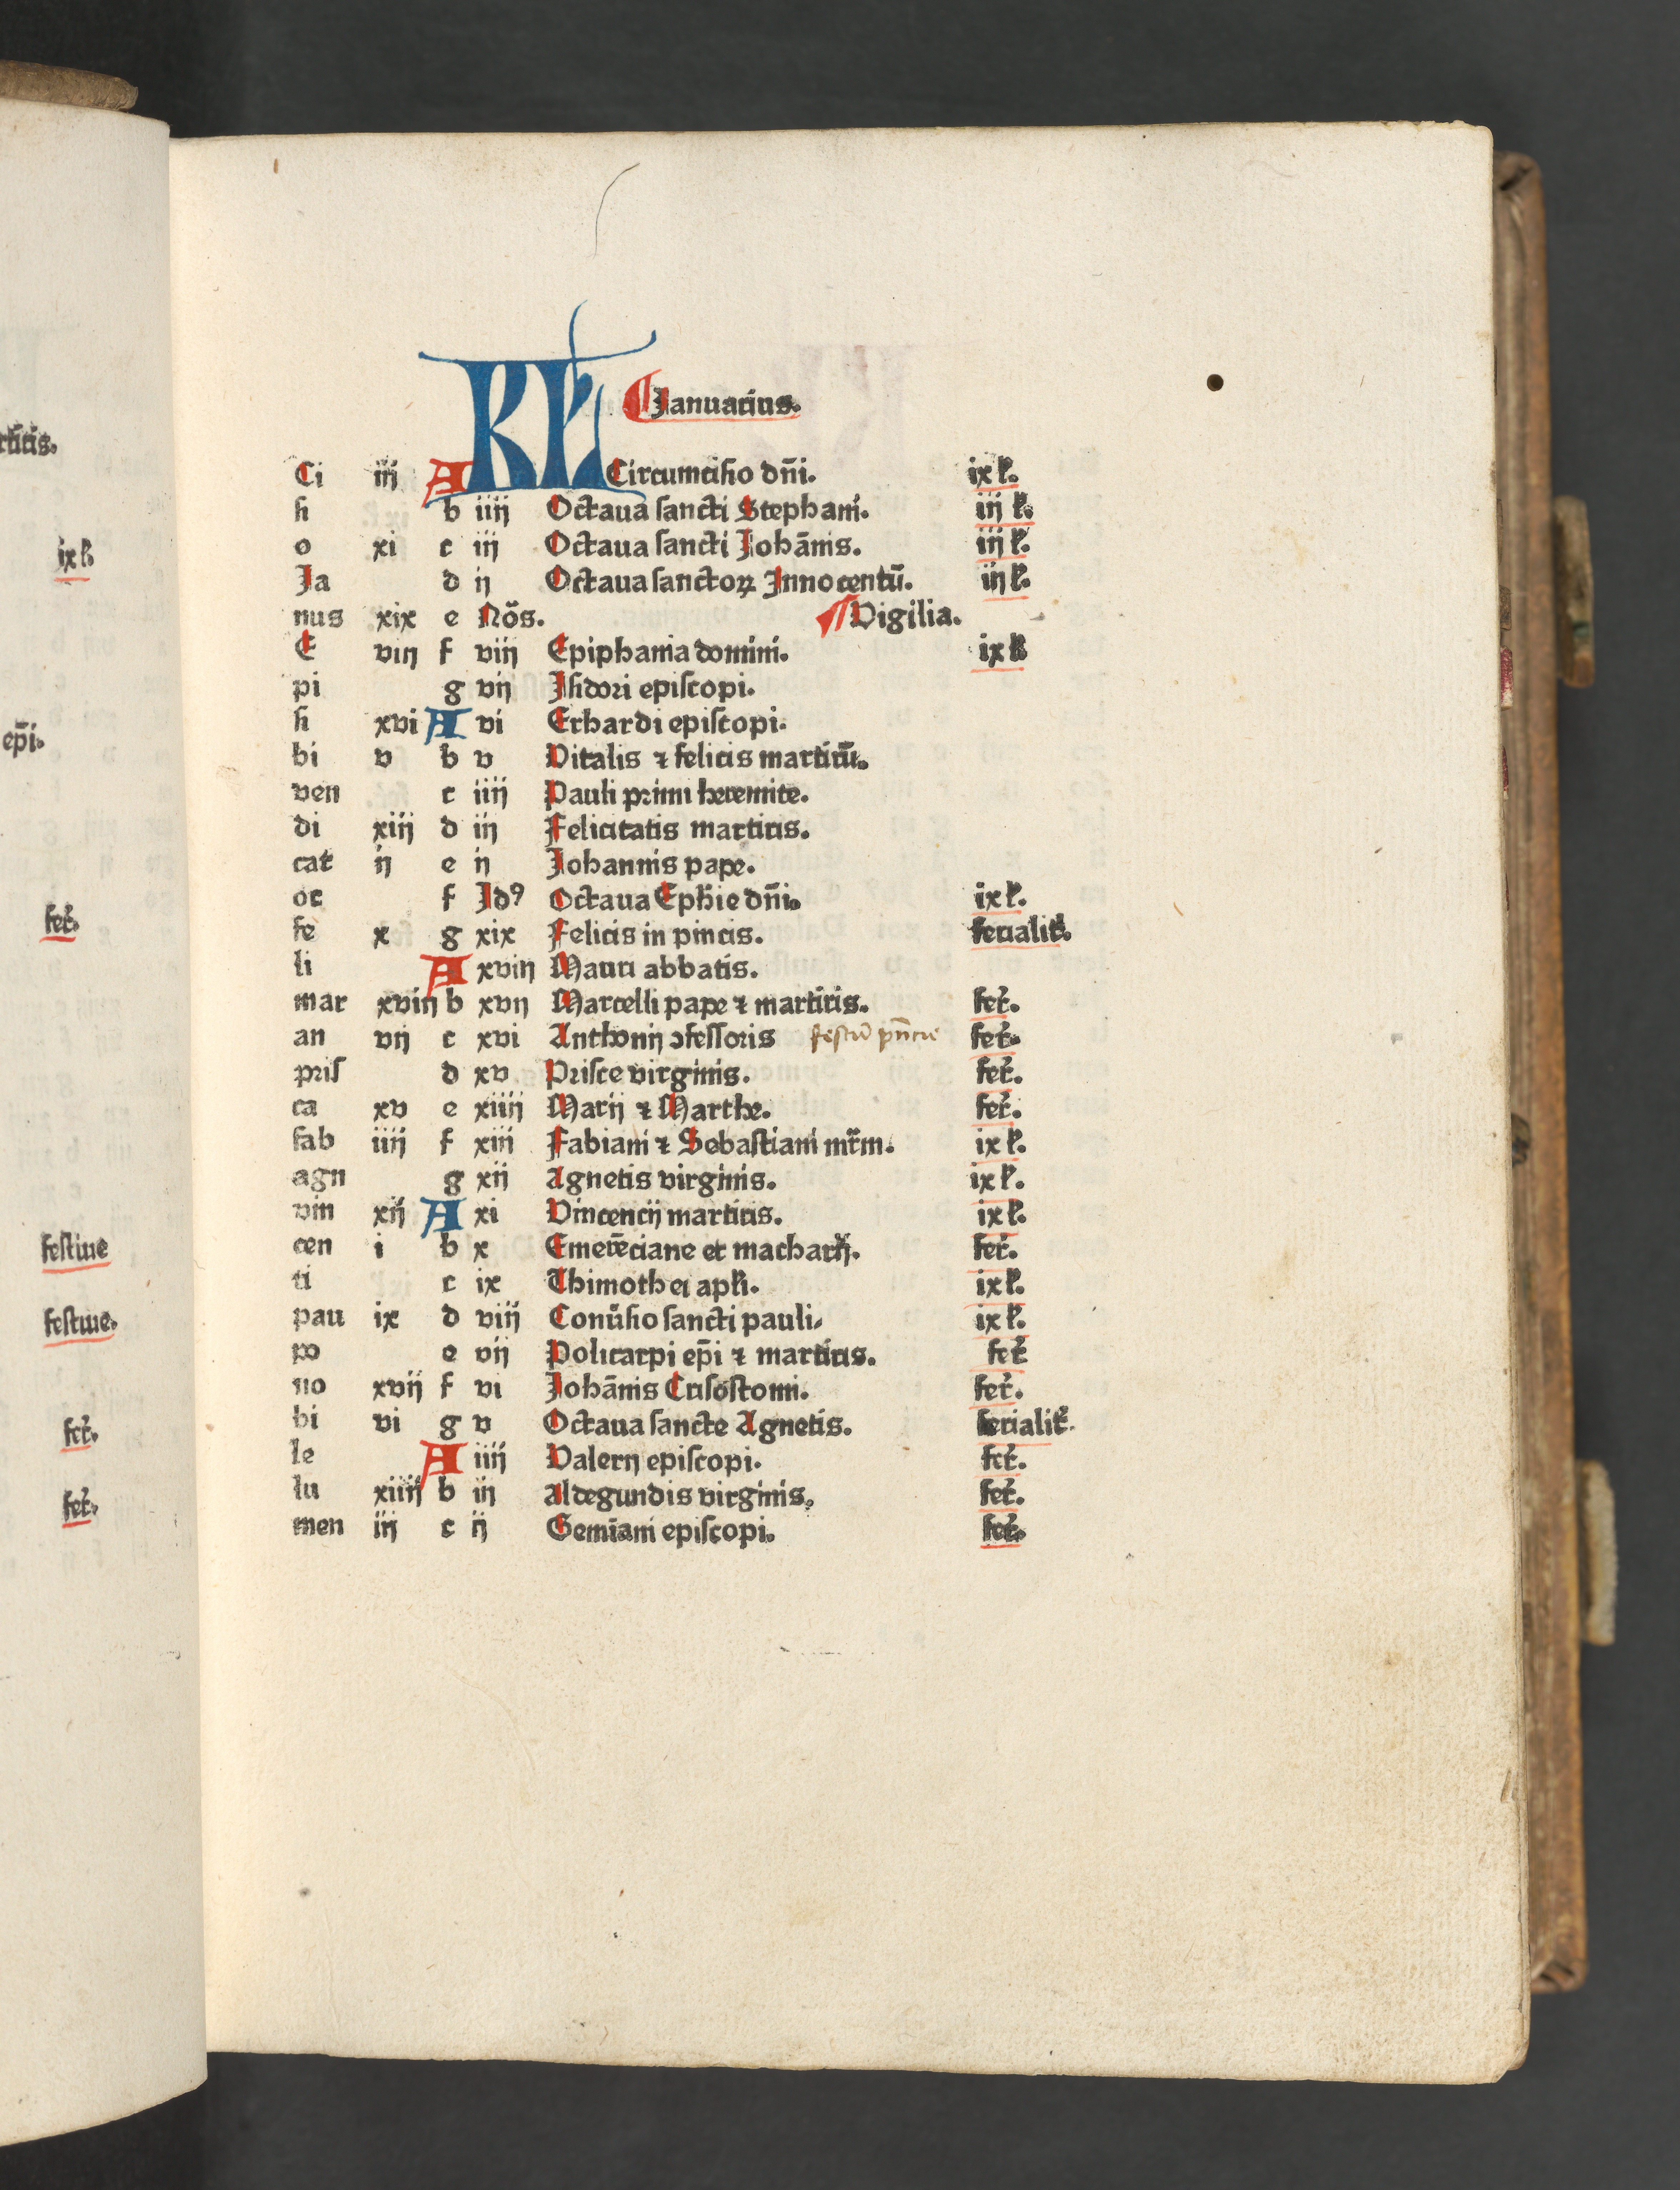 rtiris.
ix l.
epĩ.
fer.
festiue
festiue.
fer.
fer.
KL Januarius.
Ci iij A Circumcisio dñi. ix l.
si b iiij Octaua sancti Stephani. iij l.
o xi c iij Octaua sancti Johãnis. iij l.
Ja d ij Octaua sanctoꝝ Innocentũ. iij l.
nus xix e Nõs. Vigilia.
E viij f viij Epiphania domini. ix l
pi g vij Jsidori episcopi.
si xvi A vi Erhardi episcopi.
bi v b v Vitalis ⁊ felicis martirũ.
ven c iiij Pauli primi heremite.
di xiij d iij Felicitatis martiris.
cat ij e ij Johannis pape.
oc f Jdꝯ Octaua Ephie dñi. ix l.
fe x g xix Felicis in pincis. ferialit.
li A xviij Mauri abbatis.
mar xviij b xvij Marcelli pape ⁊ martiris. fer.
an vij c xvi Anthonij ↄfessoris fer.
pris d xv Prisce virginis. fer.
ca xv e xiiij Marij ⁊ Marthe. fer.
fab iiij f xiij Fabiani ⁊ Sebastiani mr̃m. ix l.
agn g xij Agnetis virginis. ix l.
vin xij A xi Vincencij martiris. ix l.
cen i b x Emerẽciane et macharij. fer.
ti c ix Thimothei apli. ix l.
pau ix d viij Conũsio sancti pauli. ix l.
po e vij Policarpi epĩ ⁊ martiris. fer
no xvij f vi Johãnis Crisostomi. fer.
bi vi g v Octaua sancte Agnetis. ferialit.
le A iiij Valerij episcopi. fer.
lu xiiij b iij aldegundis virginis. fer.
men iij c ij Gemiani episcopi. fer.